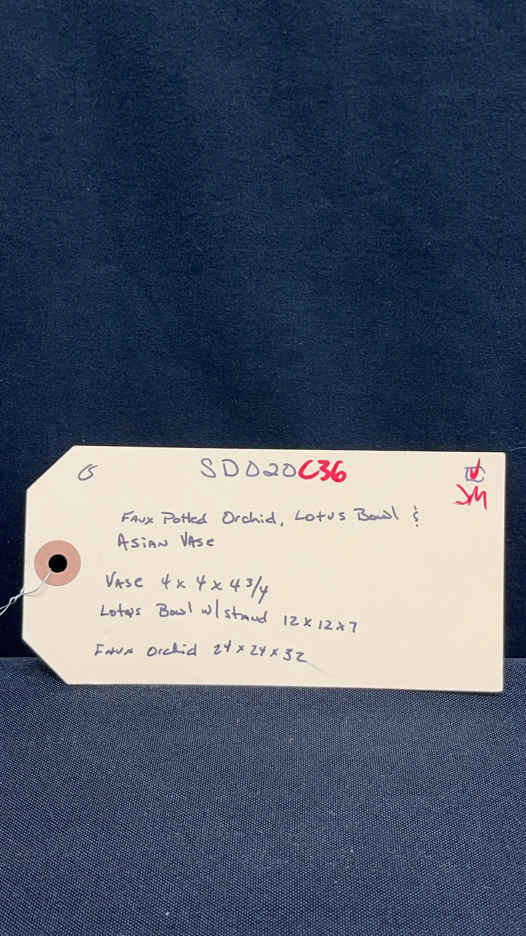 SDD20C36
JM
Faux Potted Orchid, Lotus Bowl &
Asian Vase
Vase 4 x 4 x 4 3/4
Lotus Bowl w/stand 12 x 12 x 7
Faux Orchid 24 x 24 x 32